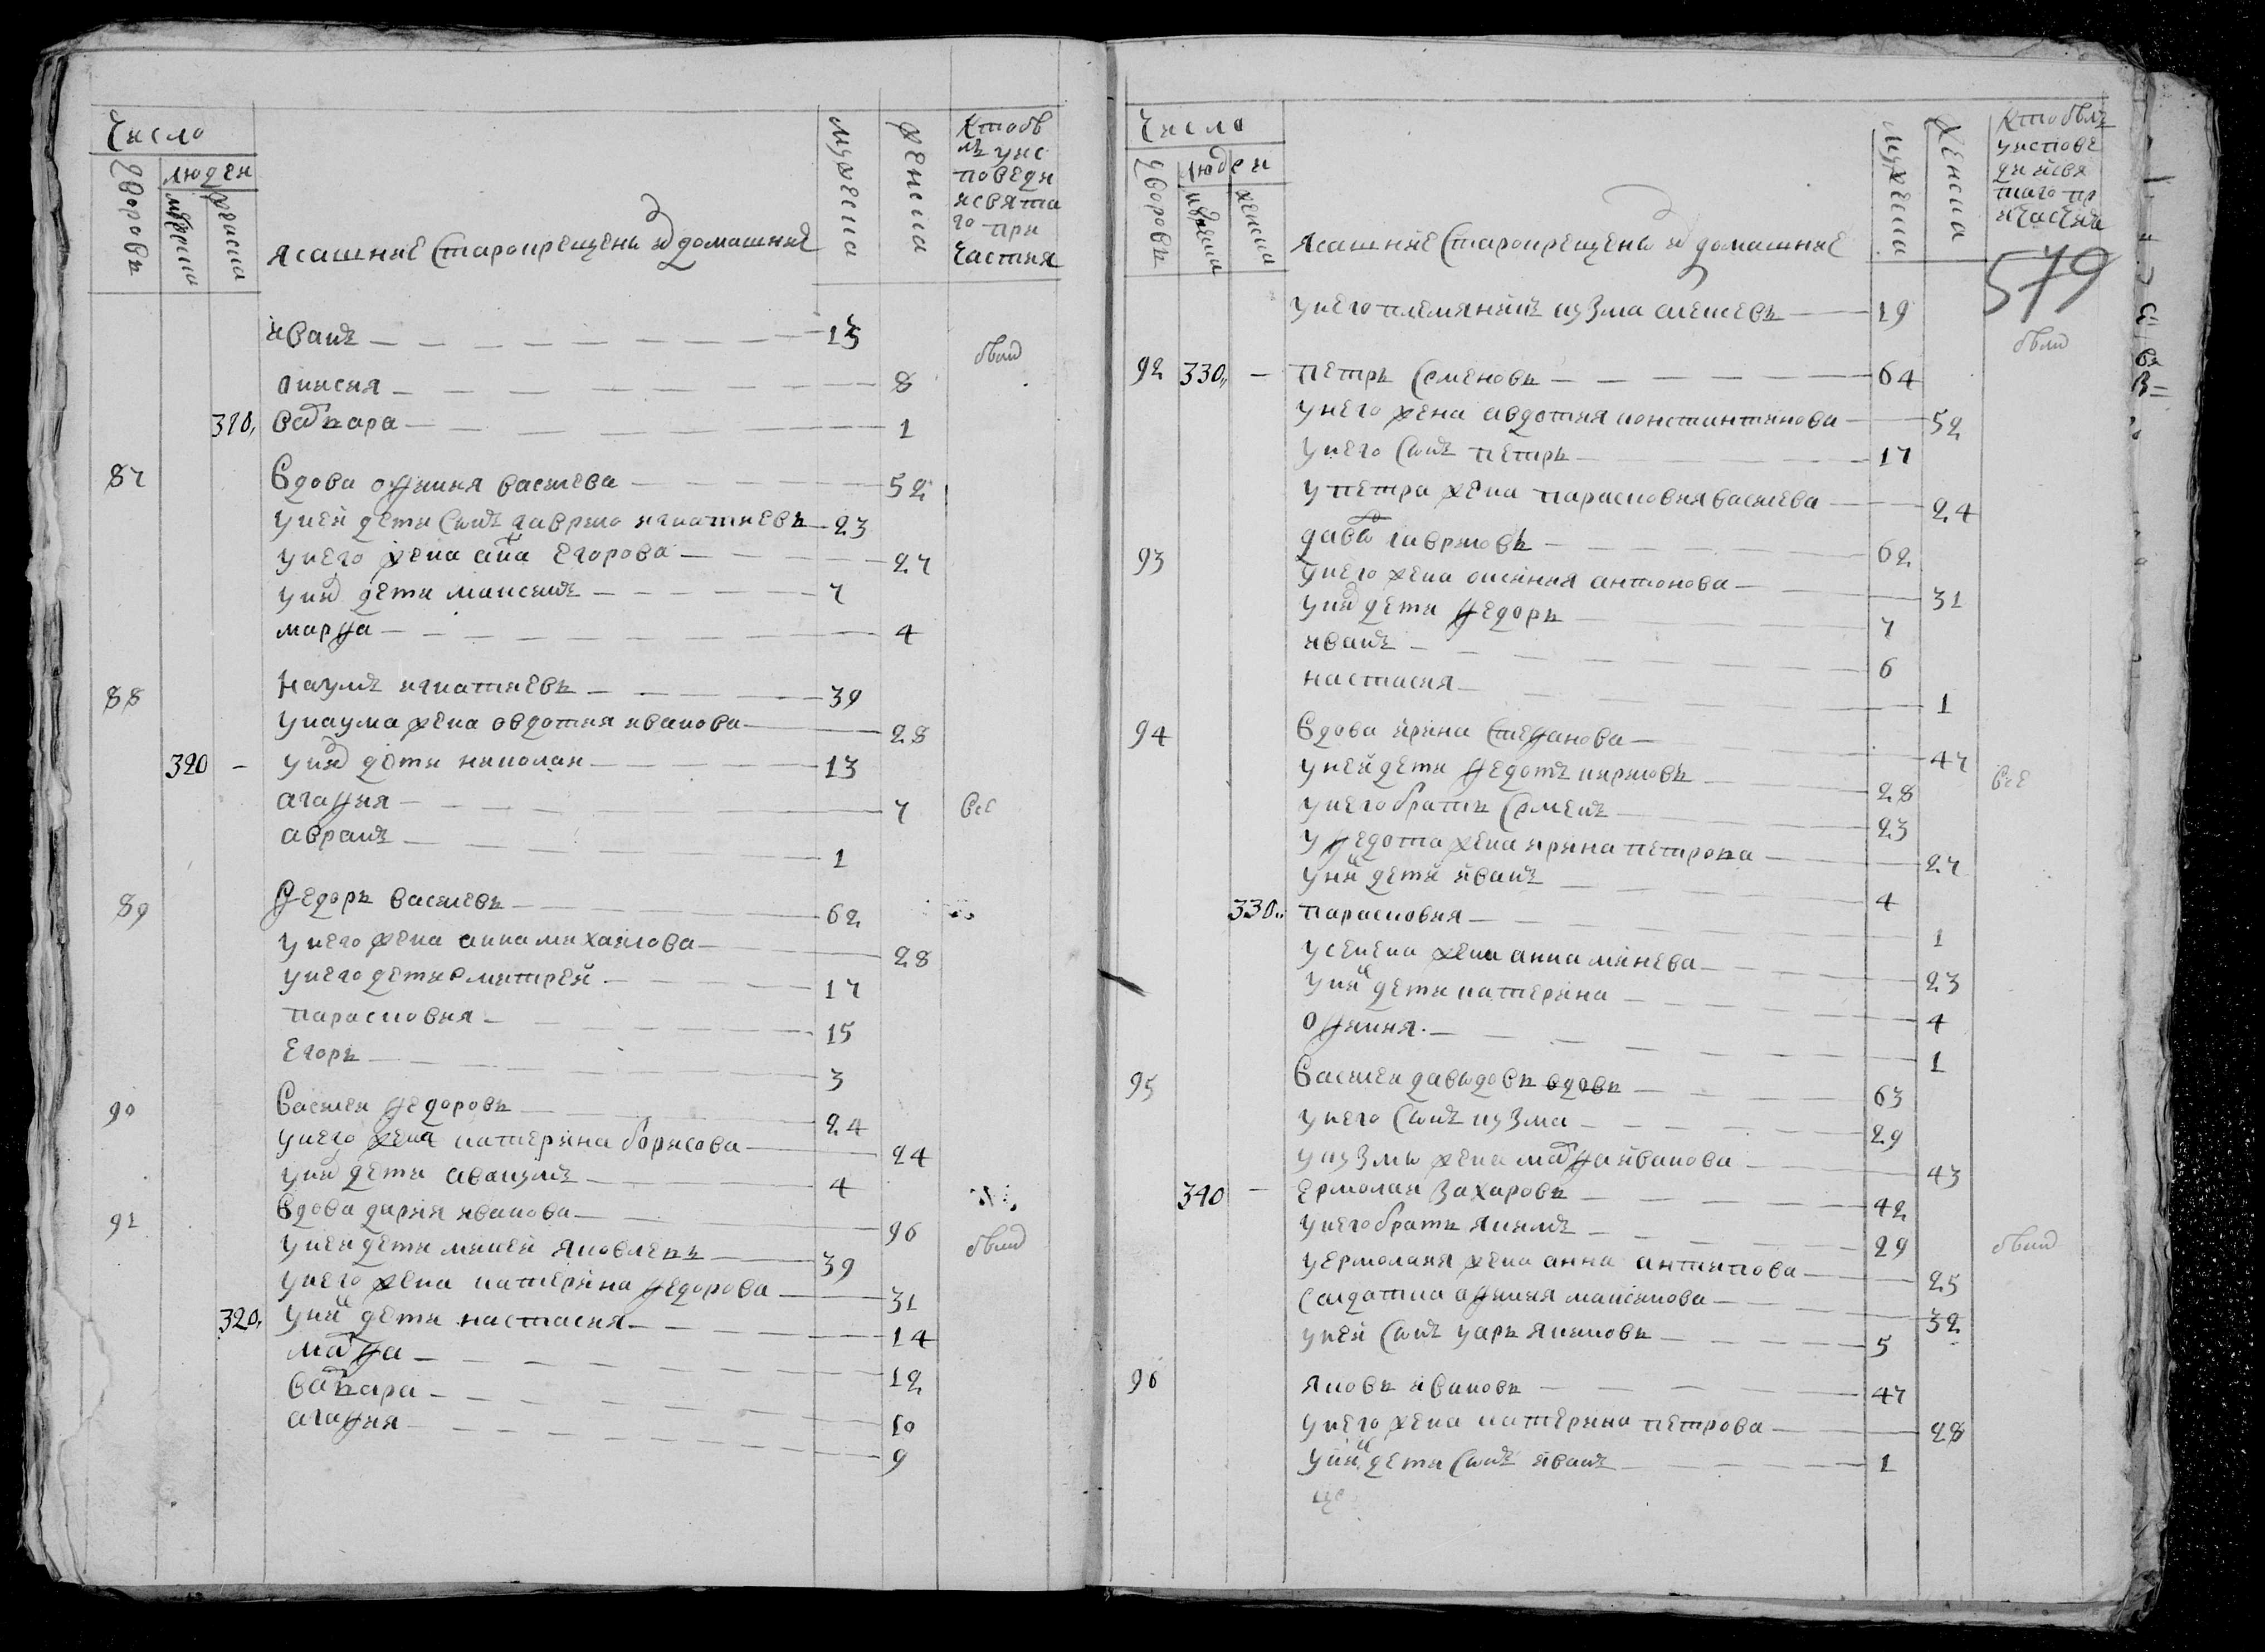 Число
дворовъ
людеи
мужеска
женска
ясашние старокрещены и домашние
мужеска
женска
Кто былъ у испо
ведиисвята
го при
частия
иванъ 15
были
аксиня 8
310, варвара 1
87 вдова офимия василева 52
у неи дети сынъ гаврило игнатиевъ 23
у него жена анна егорова 27
у них дети максимъ 7
марфа 4
88 наумъ игнатиевъ 39
у наума жена овдотия иванова 28
320 у них дети николаи 13
агафия 7
все
аврамъ 1
89 федоръ василевъ 62
у него жена анна михаилова 28
у него дети дмитреи 17
парасковия 15
егоръ 3
90 василеи федоровъ 24
у него жена катерина борисова 24
у них дети авакумъ 4
91 вдова дария иванова 96
были
у неи дети микеи яковлевъ 39
у него жена катерина федорова 31
320, у них дети настасия 14
марфа 12
варвара 10
агафия 9
Число
дворовъ
людеи
мужеска
женска
ясашние старокрещены и домашние
мужеска
женска
Кто былъ
у испове
ди и свя
таго пр
ичастия
579
у него племяникъ кузма алексевъ 19
были
92 330,, петръ семеновъ 64
у него жена авдотия констинтинова 52
у него сынъ петръ 17
у петра жена парасковия василева 24
93 давыд гавриловъ 62
у него жена аксиния антонова 31
у них дети федоръ 7
иванъ 6
настасия 1
94 вдова ирина степанова 47
у неи дети федотъ кириловъ 28
все
у него братъ семенъ 23
у федота жена ирина петрова 27
у них дети иванъ 4
330,, парасковия 1
у семена жена анна минева 23
у них дети катерина 4
офимия 1
95 василеи давыдовъ вдовъ 63
у него сынъ кузма 29
у кузмы жена марфа иванова 43
340 ермолаи захаровъ 42
у него братъ якимъ 29
были
у ермолая жена анна антипова 25
салдатка афимия максимова 32
у неи сынъ уаръ якимовъ 5
96 яковъ ивановъ 47
у него жена катерина петрова 28
у них дети сынъ иванъ 1